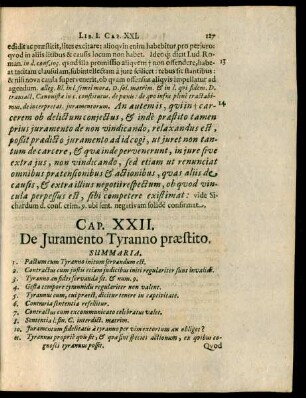 LIB. I. CAP. XXI. 127
edidit ac præstitit, lites excitare: alioqvin enim habebitur pro perjuro:
qvod in aliis litibus & causis locum non habet. Ideoq; dicit Lud. Ro-
man. in d. cons. 109. quod si is promissio aliqvem non offendere, habe- 13
at tacitam clausulam, subintellectam à jure scilicet: rebus sic stantibus:
& nisi nova causa supervenerit, ob quam offensus aliqvis impellatur ad
agendum.
tract. Canonista in c. constitutus, de poenis:
do, de interpretat. juramentorum. An autem is, qvi in car- 14
cerem ob delictum conjectus, & inde præstito tamen
prius juramento de non vindicando, relaxandus est,
possit prædicto juramento ad id cogi, ut juret non tan-
tum de carcere, & quæ inde pervenerunt, in jure sive
extra jus, non vindicando, sed etiam ut renunciat
omnibus prætensionibus & actionibus, quas aliis de
causis, & extra illius negotii respectum, ob quod vincu-
la perpessus est, sibi competere existimat: vide Si-
chardum d. cons. crim. 9. ubi sent. negativam solide confirmat.
CAP. XXII.
De Juramento Tyranno præstito.
SUMMARIA.
1. Pactum cum Tyranno initum servandum est.
2. Contractus cum justu etiam judicibus initi regulariter sunt invalidi.
3. Tyranno an fides servanda sit. & num. 9.
4. Gesta tempore tyrannidis regulariter non valent.
5. Tyrannus cum, cui præest, dicitur tenere in captivitate.
6. Contraria sententia refellitur.
7. Contractus cum excommunicato celebratus valet.
8. Sententia l. fin. C. interdict. matrim.
10. Juramentum fidelitatis à tyranno per vim extortum an obliget?
11. Tyrannus proprie qvis sit, & quæ sint species actionum, ex qvibus co-
gnosci tyrannus possit.
Qvod